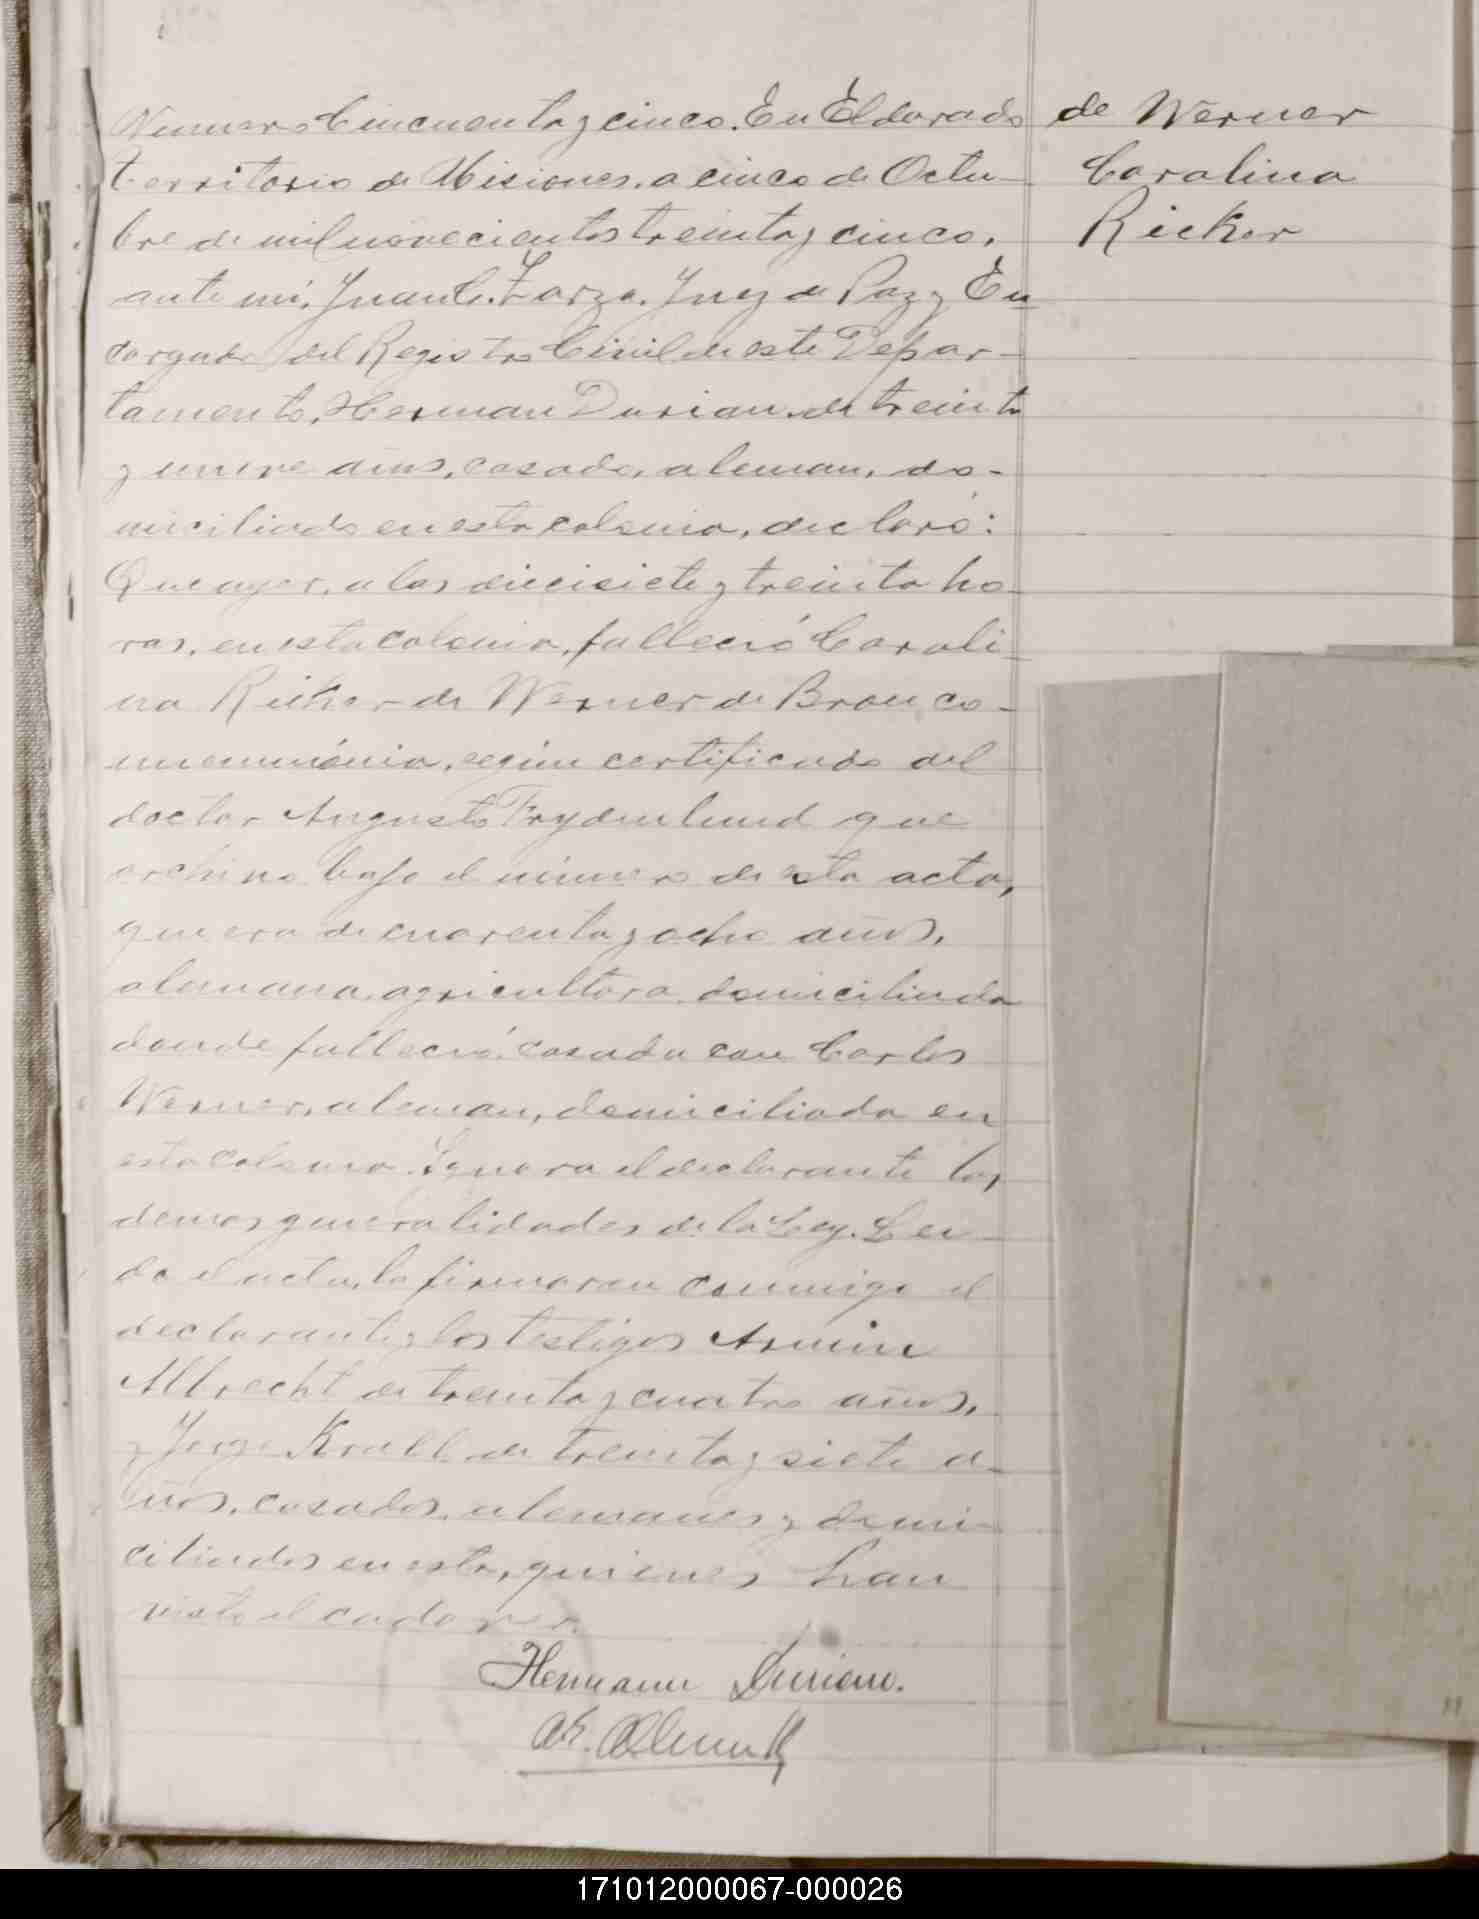 Numero Cincuenta y cinco. En Eldorado
territorio de Misiones, a cinco de Octu-
bre de mil novecientos treinta y cinco,
ante mí, Juan C. Zarza, Juez de Paz y En-
cargado del Registro Civil de este Depar-
tamento, Herman Durian, de treinta
y nueve años, casado, aleman, do-
miciliado en esta colonia, declaró:
Que ayer, a las diecisiete y treinta ho-
ras, en esta colonia, falleció Caroli-
na Ricker de Werner de Bronco-
neumónia, según certificado del
doctor Augusto Frydenlund que
archivo bajo el número de esta acta,
que era de cuarenta y ocho años,
alemana, agricultora, domiciliada
donde falleció, casada con Carlos
Werner, aleman, domiciliado en
esta colonia. Ignora el declarante las
demas generalidades de la Ley. Lei-
da el acta, la firmaron conmigo el
declarante y los testigos Armin
Albrecht de treinta y cuatro años,
y Jorge Krall de treinta y siete a-
ños, casados, alemanes y domi-
ciliados en esta, quienes han
visto el cadaver.
Hermann Durian.
de Werner
Carolina
Ricker
171012000067-000026